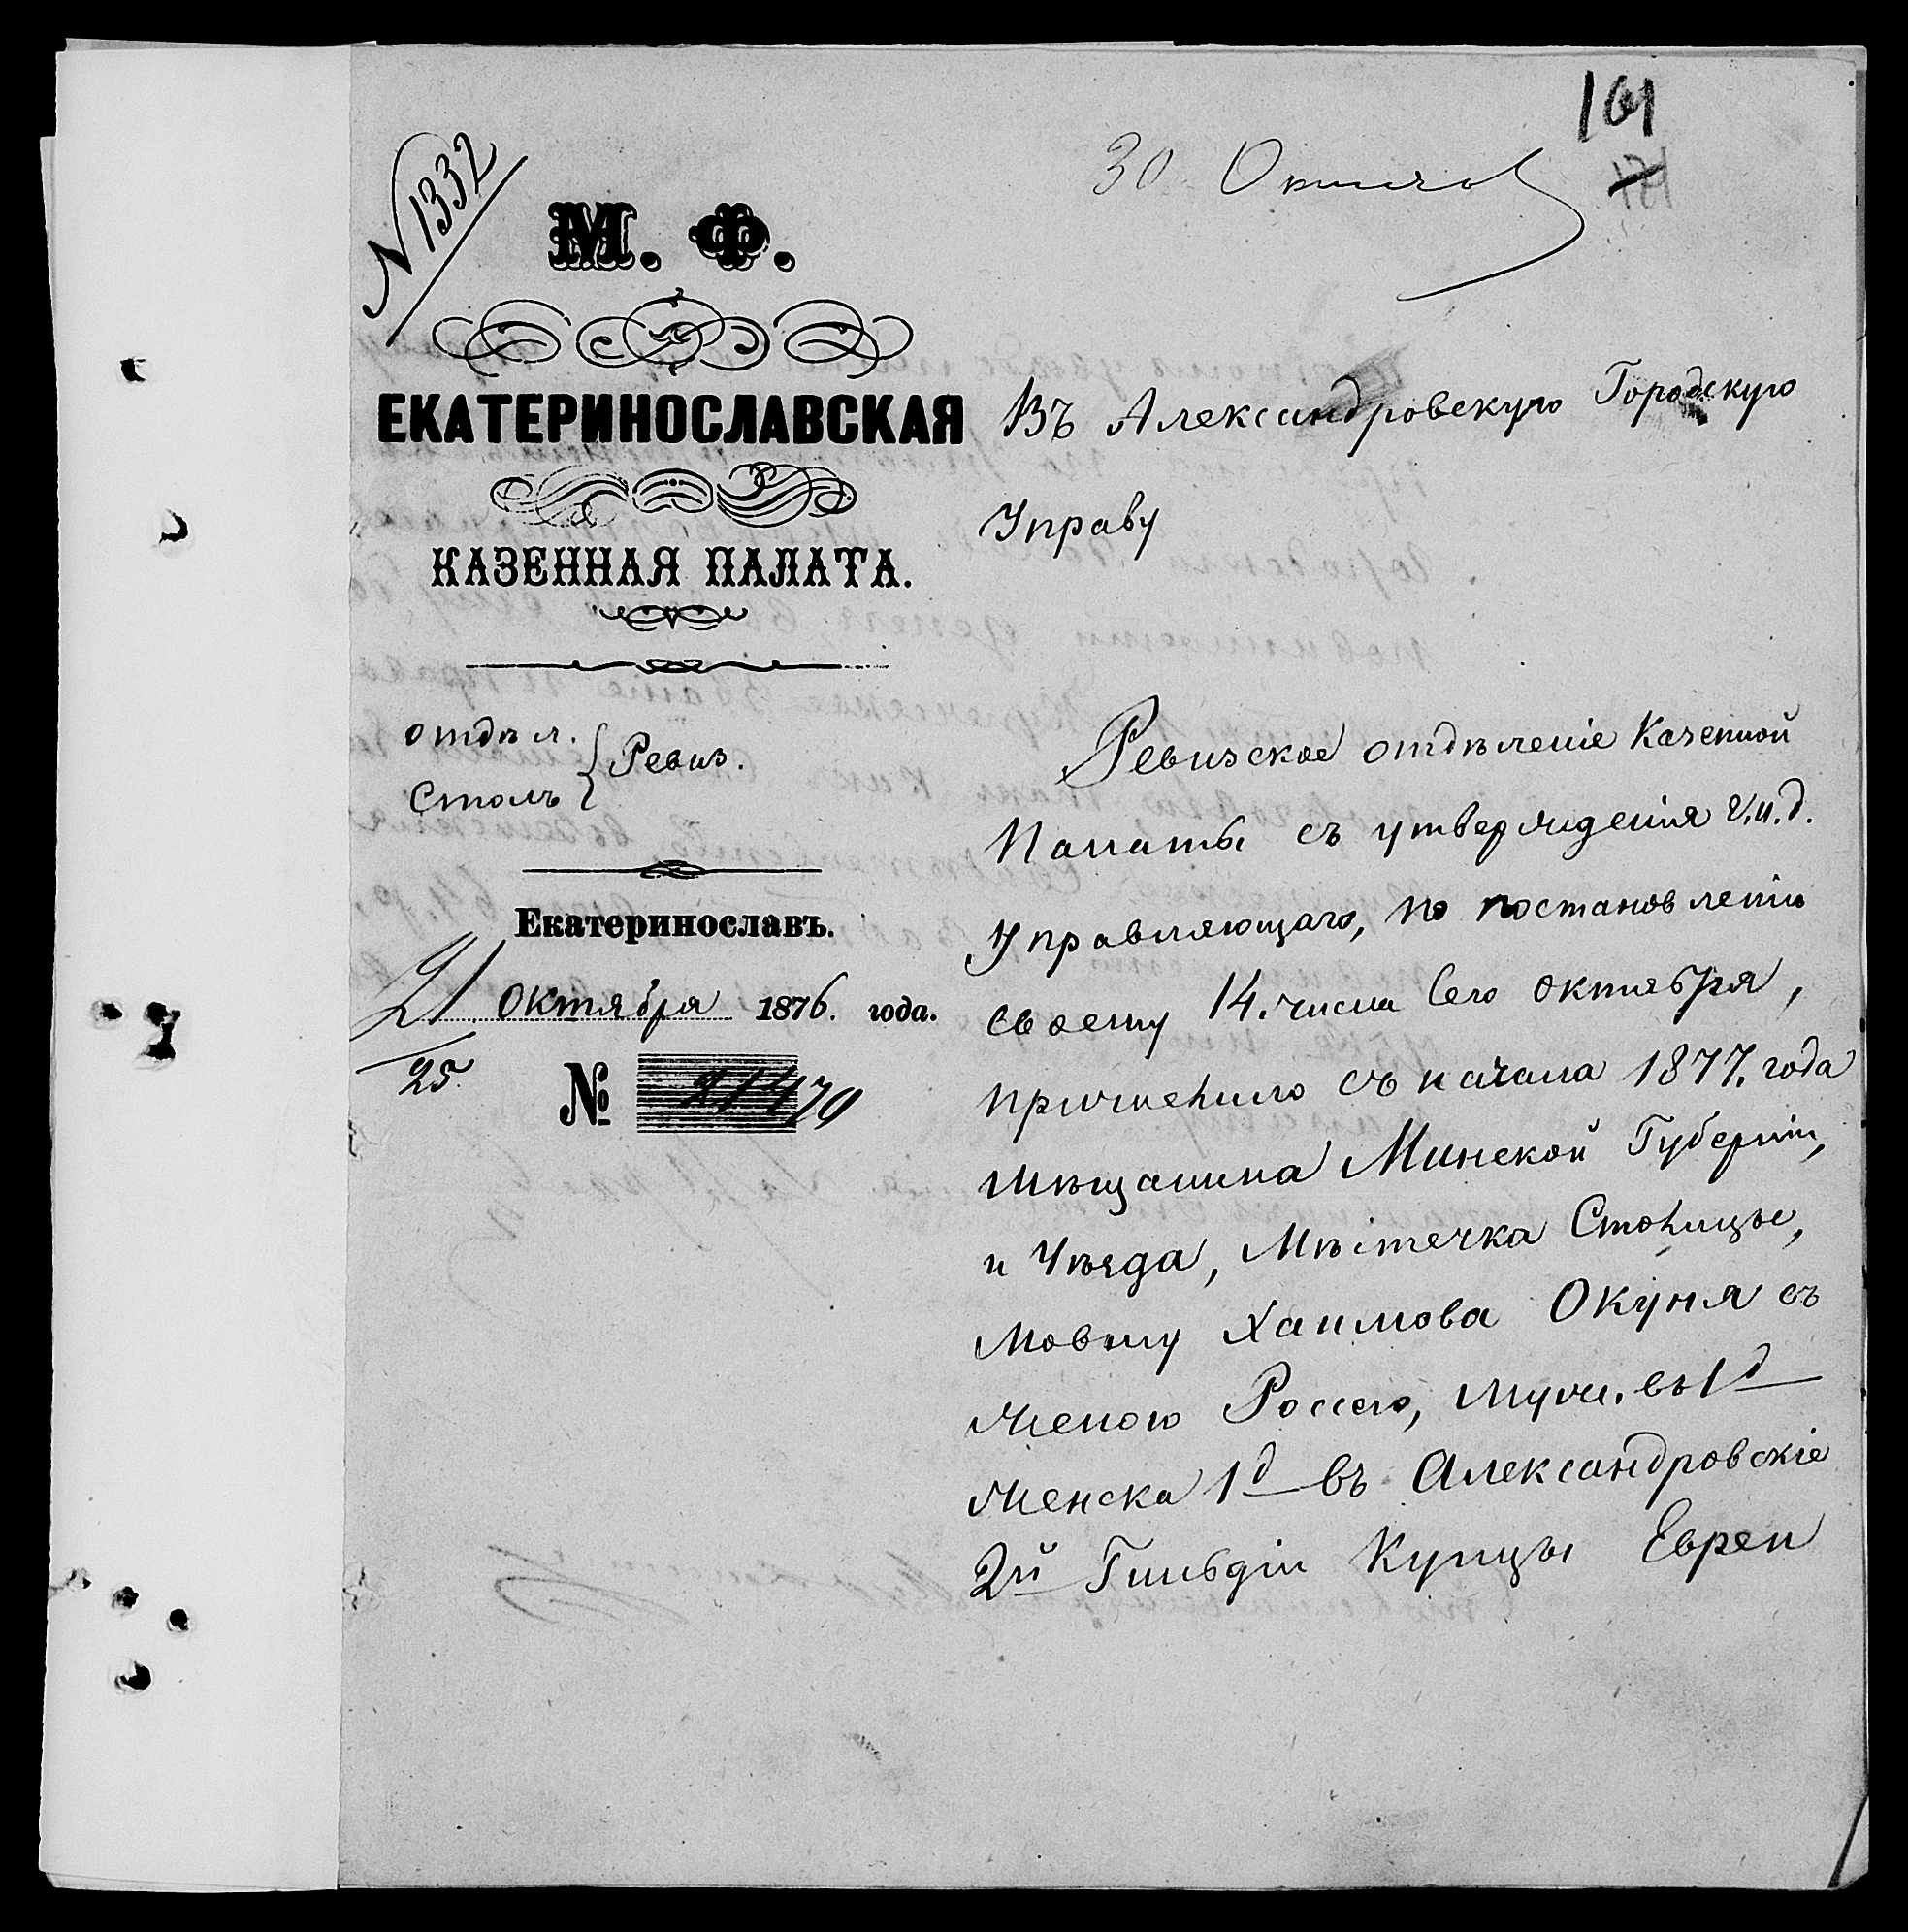 161
N 1332
30 Октяб
М. Ф.
ЕКАТЕРИНОСЛАВСКАЯ
КАЗЕННАЯ ПАЛАТА.
отдѣл.
Столъ
Ревиз.
Екатеринославъ.
21 октября 1876. года.
25
№ 21470
Въ Александровскую Городскую
Управу
Ревизское отдѣленіе Казенной
Палаты съ утвержденія г.и.д.
Управляющаго, по постановленію
своему 14. числа сего октября,
причислило съ начала 1877. года
мѣщанина Минской Губерніи,
и Уѣзда, Мѣстечка Столицы,
Мовшу Хаимова Окуня съ
женою Россею, муж. въ 1д
женска 1д въ Александровскіе
2й Гильдіи Купцы Евреи